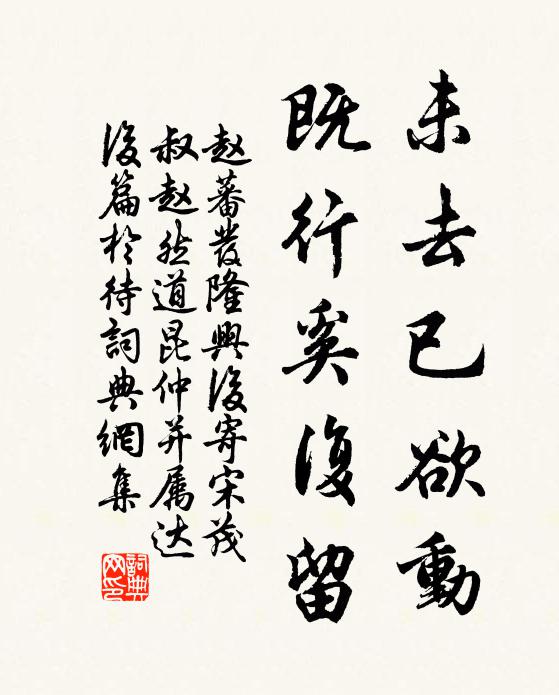 未去已欲動
既行奚復留
赵蕃發隆興後寄宋茂
叔赵然道昆仲并属达
後篇於待詞典網集
詞典網印